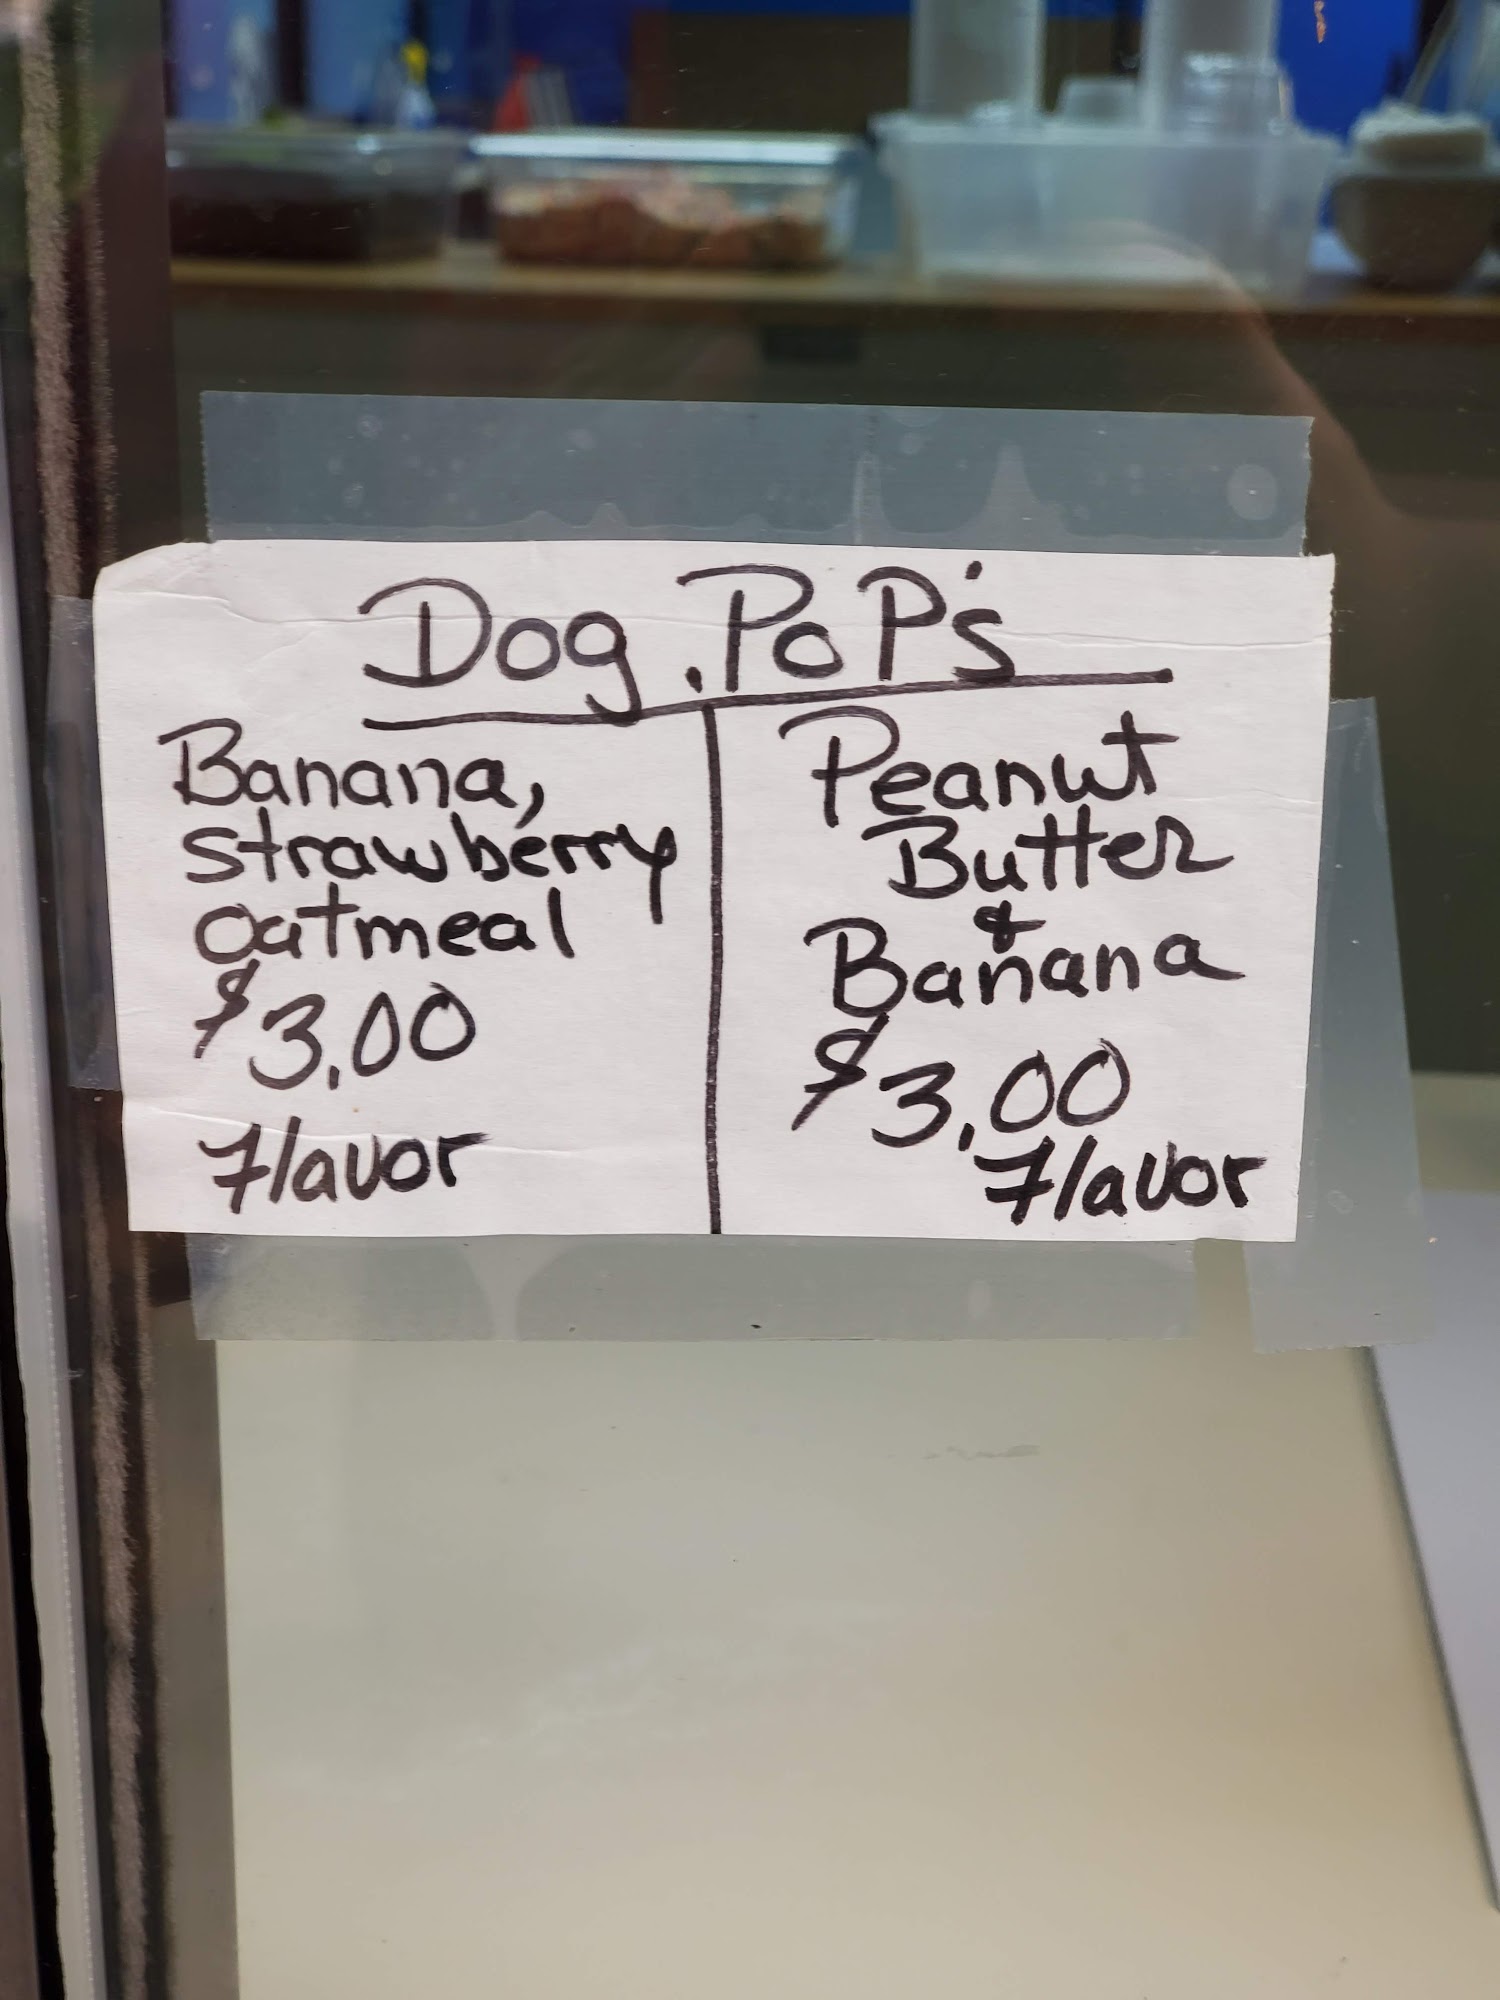 Dog PoP's
Banana,
strawberry
oatmeal
$3.00
Flavor
Peanut
Butter
&
Banana
$3.00
Flavor